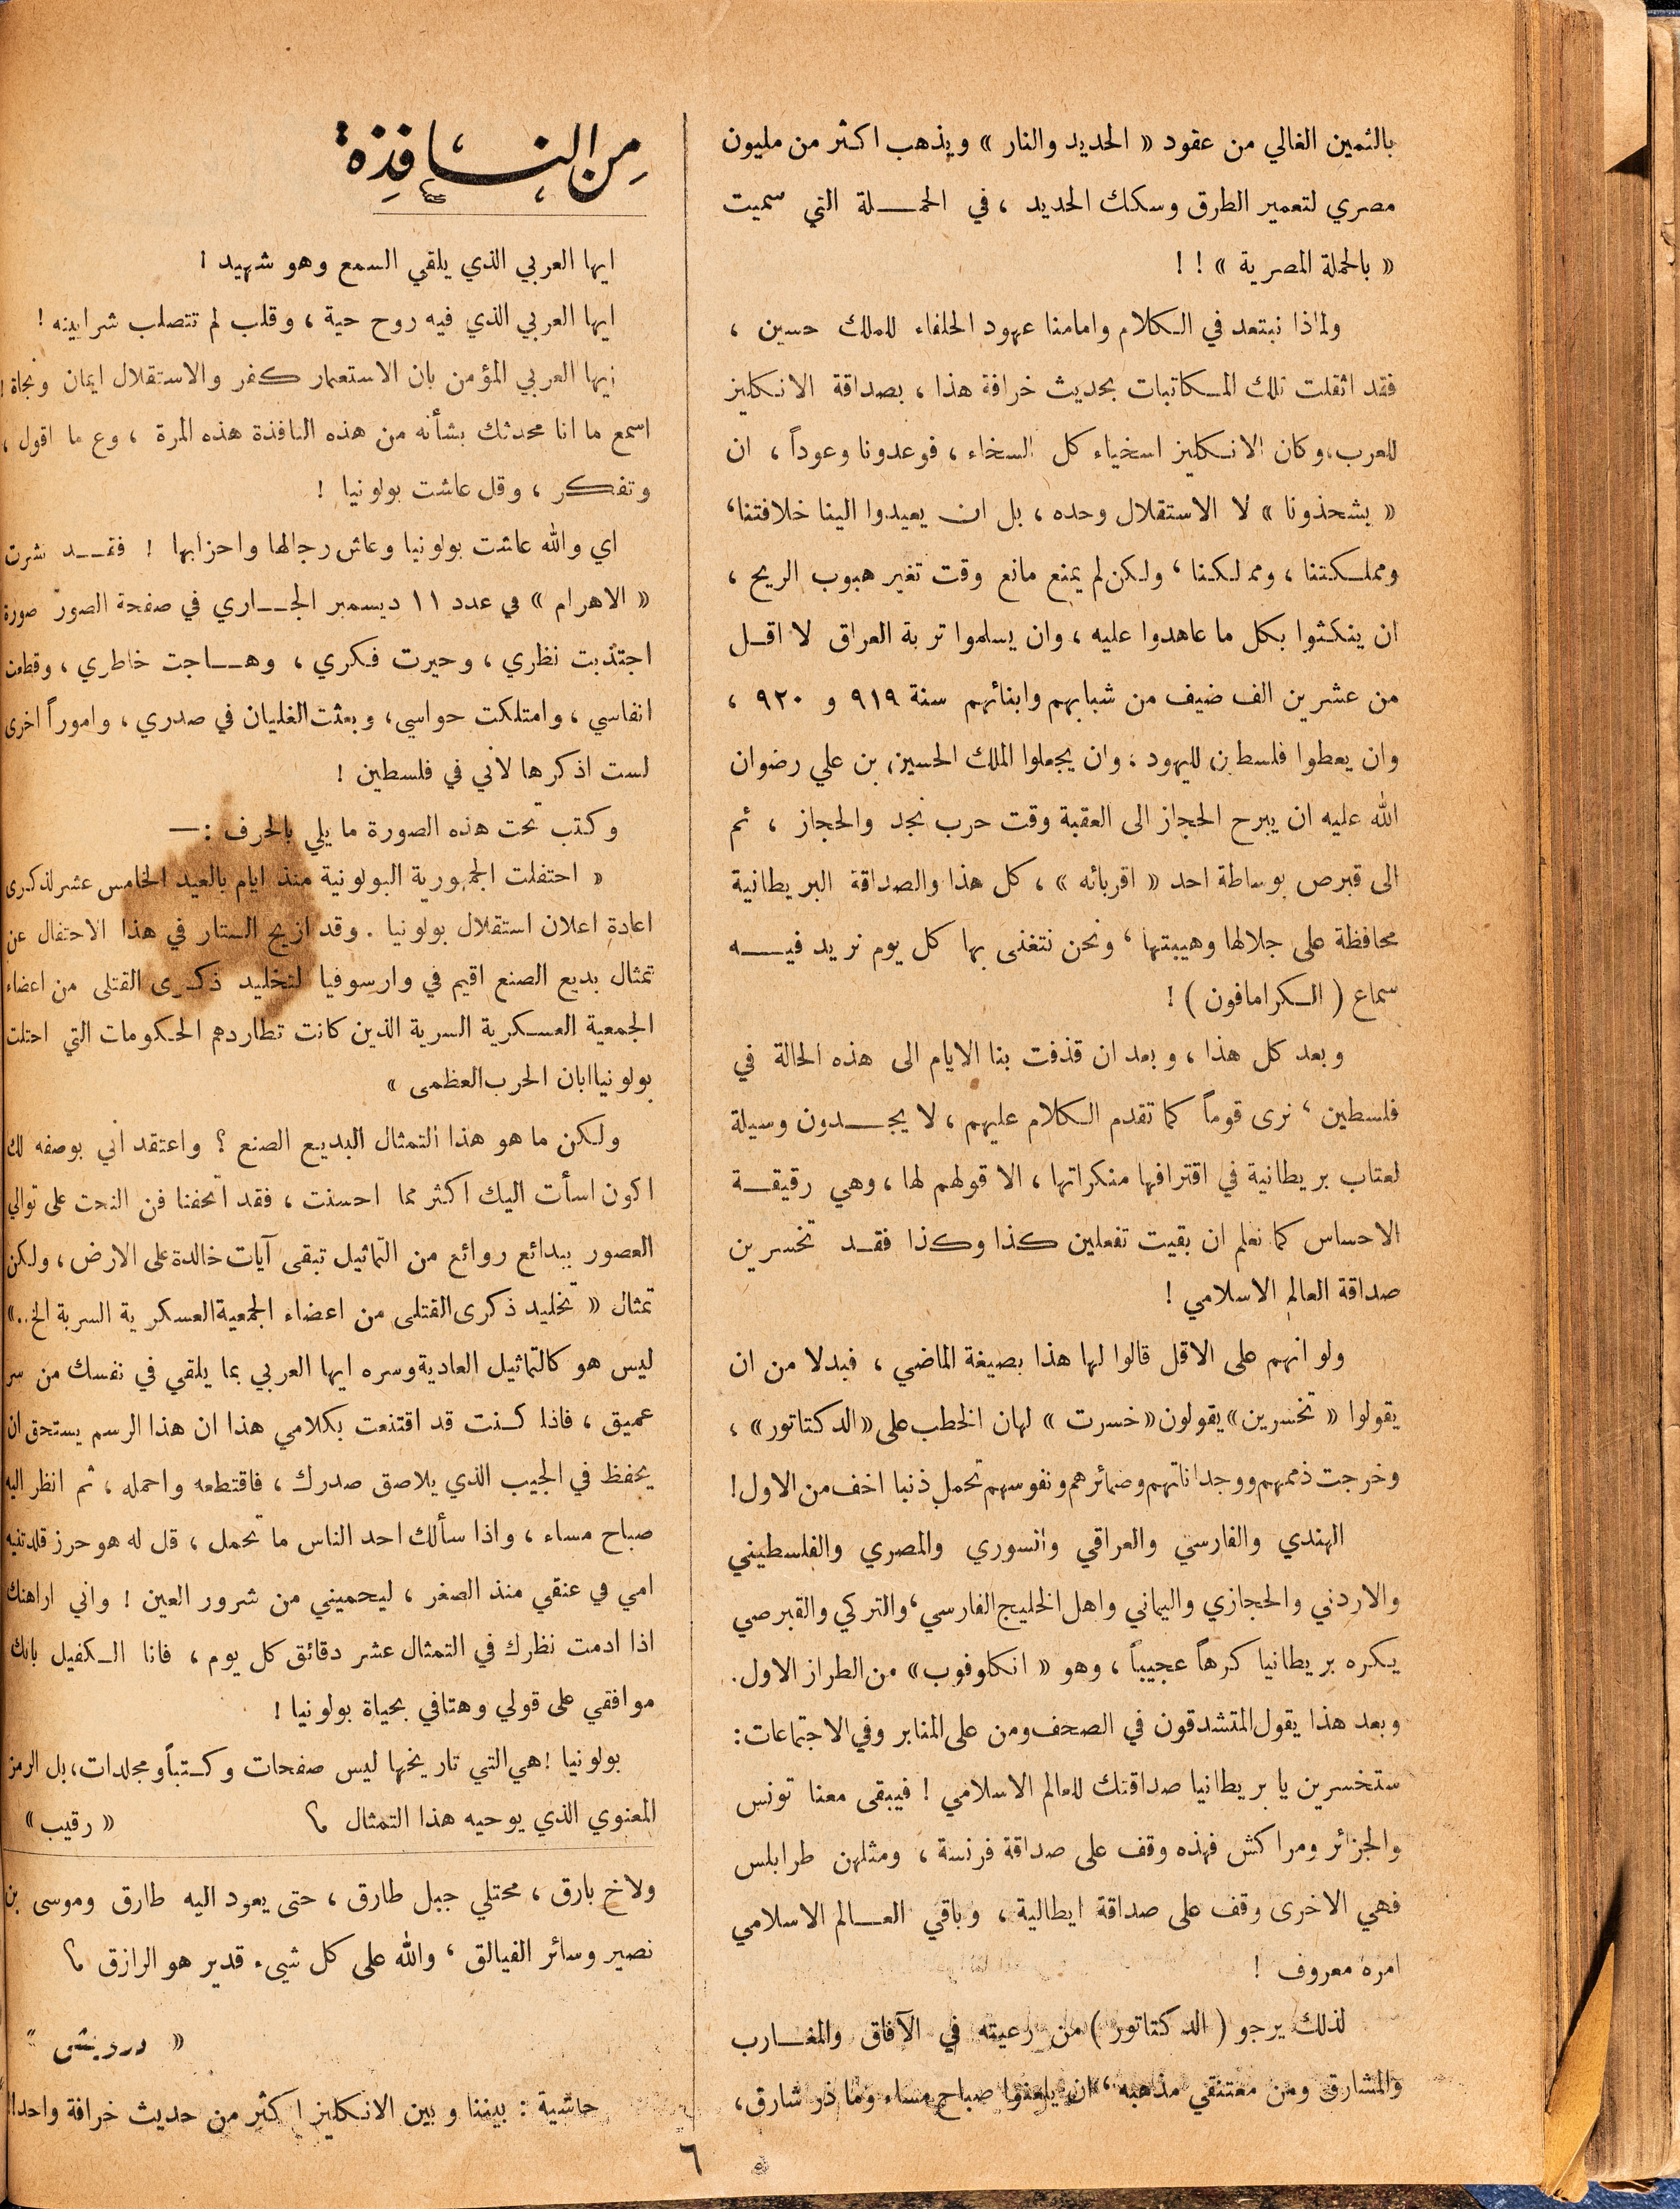 بالثمين الغالي من عقود « الحديد والنار » ويذهب اكثر من مليون
مصري لتعمير الطرق وسكك الحديد ، في الحملة التي سميت
« بالحملة المصرية » ! !
ولماذا نبتعد في الكلام وامامنا عهود الحلفاء للملك حسين ،
فقد اثقلت تلك المكاتبات بحديث خرافة هذا ، بصداقة الانكليز
للعرب، وكان الانكليز اسخياء كل السخاء ، فوعدونا وعوداً ، ان
« يشحذونا » لا الاستقلال وحده ، بل ان يعيدوا الينا خلافتنا ،
ومملكتنا ، وممالكنا ، ولكن لم يمنع مانع وقت تغير هبوب الريح ،
ان ينكثوا بكل ما عاهدوا عليه ، وان يسلموا تربة العراق لا اقل
من عشرين الف ضيف من شبابهم وابنائهم سنة ٩١٩ و ٩٢٠ ،
وان يعطوا فلسطين لليهود ، وان يجعلوا الملك الحسين بن علي رضوان
الله عليه ان يبرح الحجاز الى العقبة وقت حرب نجد والحجاز ، ثم
الى قبرص بوساطة احد « اقربائه » ، كل هذا والصداقة البريطانية
محافظة على جلالها وهيبتها ، ونحن نتغنى بها كل يوم نريد فيه
سماع ( الكرامافون ) !
وبعد كل هذا ، وبعد ان قذفت بنا الايام الى هذه الحالة في
فلسطين ، نرى قوماً كما تقدم الكلام عليهم ، لا يجدون وسيلة
لعتاب بريطانية في اقترافها منكراتها ، الا قولهم لها ، وهي رقيقة
الاحساس كما نعلم ان بقيت تفعلين كذا وكذا فقد تخسرين
صداقة العالم الاسلامي !
ولو انهم على الاقل قالوا لها هذا بصيغة الماضي ، فبدلا من ان
يقولوا « تخسرين » يقولون « خسرت » لهان الخطب على « الدكتاتور » ،
وخرجت ذممهم ووجداناتهم وضمائرهم ونفوسهم تحمل ذنبا اخف من الاول !
الهندي والفارسي والعراقي والسوري والمصري والفلسطيني
والاردني والحجازي واليماني واهل الخليج الفارسي، والتركي والقبرصي
يكره بريطانيا كرهاً عجيباً ، وهو « انكلوفوب » من الطراز الاول .
وبعد هذا يقول المتشدقون في الصحف ومن على المنابر وفي الاجتماعات :
ستخسرين يا بريطانيا صداقتك للعالم الاسلامي ! فيبقى معنا تونس
والجزائر ومراكش فهذه وقف على صداقة فرنسة ، ومثلهن طرابلس
فهي الاخرى وقف على صداقة ايطالية ، وباقي العالم الاسلامي
امره معروف !
لذلك يرجو ( الدكتاتور ) من رعيته في الآفاق والمغارب
والمشارق ومن معتنقي مذهبه ، ان يلعنوا صباح مساء وما ذر شارق ،
من النافذة
ايها العربي الذي يلقي السمع وهو شهيد !
ايها العربي الذي فيه روح حية ، وقلب لم تتصلب شرايينه !
ايها العربي المؤمن بان الاستعمار كفر والاستقلال ايمان ونجاة !
اسمع ما انا محدثك بشأنه من هذه النافذة هذه المرة ، وع ما اقول ،
وتفكر ، وقل عاشت بولونيا !
اي والله عاشت بولونيا وعاش رجالها واحزابها ! فقد نشرت
« الاهرام » في عدد ١١ ديسمبر الجاري في صفحة الصور صورة
اجتذبت نظري ، وحيرت فكري ، وهاجت خاطري ، وقطعت
انفاسي ، وامتلكت حواسي ، وبعثت الغليان في صدري ، واموراً اخرى
لست اذكرها لاني في فلسطين !
وكتب تحت هذه الصورة ما يلي بالحرف : —
« احتفلت الجمهورية البولونية منذ ايام بالعيد الخامس عشر لذكرى
اعادة اعلان استقلال بولونيا . وقد ازيح الستار في هذا الاحتفال عن
تمثال بديع الصنع اقيم في وارسوفيا لتخليد ذكرى القتلى من اعضاء
الجمعية العسكرية السرية الذين كانت تطاردهم الحكومات التي احتلت
بولونيا ابان الحرب العظمى »
ولكن ما هو هذا التمثال البديع الصنع ؟ واعتقد اني بوصفه لك
اكون اسأت اليك اكثر مما احسنت ، فقد اتحفنا فن النحت على توالي
العصور ببدائع روائع من التماثيل تبقى آيات خالدة على الارض ، ولكن
تمثال « تخليد ذكرى القتلى من اعضاء الجمعية العسكرية السرية الخ .. »
ليس هو كالتماثيل العادية وسره ايها العربي بما يلقي في نفسك من سر
عميق ، فاذا كنت قد اقتنعت بكلامي هذا ان هذا الرسم يستحق ان
يحفظ في الجيب الذي يلاصق صدرك ، فاقتطعه واحمله ، ثم انظر اليه
صباح مساء ، واذا سألك احد الناس ما تحمل ، قل له هو حرز قلدتنيه
امي في عنقي منذ الصغر ، ليحميني من شرور العين ! واني اراهنك
اذا ادمت نظرك في التمثال عشر دقائق كل يوم ، فانا الكفيل بانك
موافقي على قولي وهتافي بحياة بولونيا !
بولونيا ! هي التي تاريخها ليس صفحات وكتباً ومجلدات، بل الرمز
المعنوي الذي يوحيه هذا التمثال ؟ « رقيب »
ولاخ بارق ، محتلي جبل طارق ، حتى يعود اليه طارق وموسى بن
نصير وسائر الفيالق ، والله على كل شيء قدير هو الرازق ؟
« درويش »
حاشية : بيننا وبين الانكليز اكثر من حديث خرافة واحد !!
٦